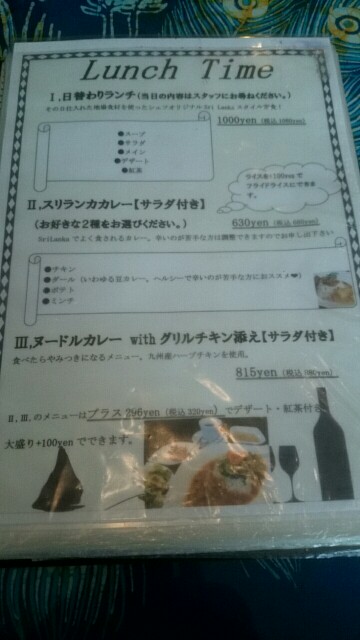 Lunch Time
Ⅰ,日替わりランチ(当日の内容はスタッフにお尋ねください。)
その日仕入れた地場食材を使ったシェフオリジナル Sri Lanka スタイル定食!
1000yen (税込 1080yen)
●スープ
●サラダ
●メイン
●デザート
●紅茶
ライスを+100yen で
フライドライスにできま
す。
Ⅱ.スリランカカレー【サラダ付き】
(お好きな2種をお選びください。)
630yen (税込 680yen)
SriLanka でよく食されるカレー。辛いのが苦手な方は調整できますのでお申し出下さい
●チキン
●ダール (いわゆる豆カレー。ヘルシーで辛いのが苦手な方におススメ❤)
●ポテト
●ミンチ
Ⅲ,ヌードルカレー with グリルチキン添え【サラダ付き】
食べたらやみつきになるメニュー。九州産ハーブチキンを使用。
815yen (税込 880yen)
Ⅱ,Ⅲ,のメニューはプラス 296yen (税込 320yen) でデザート・紅茶付き
大盛り+100yen でできます。